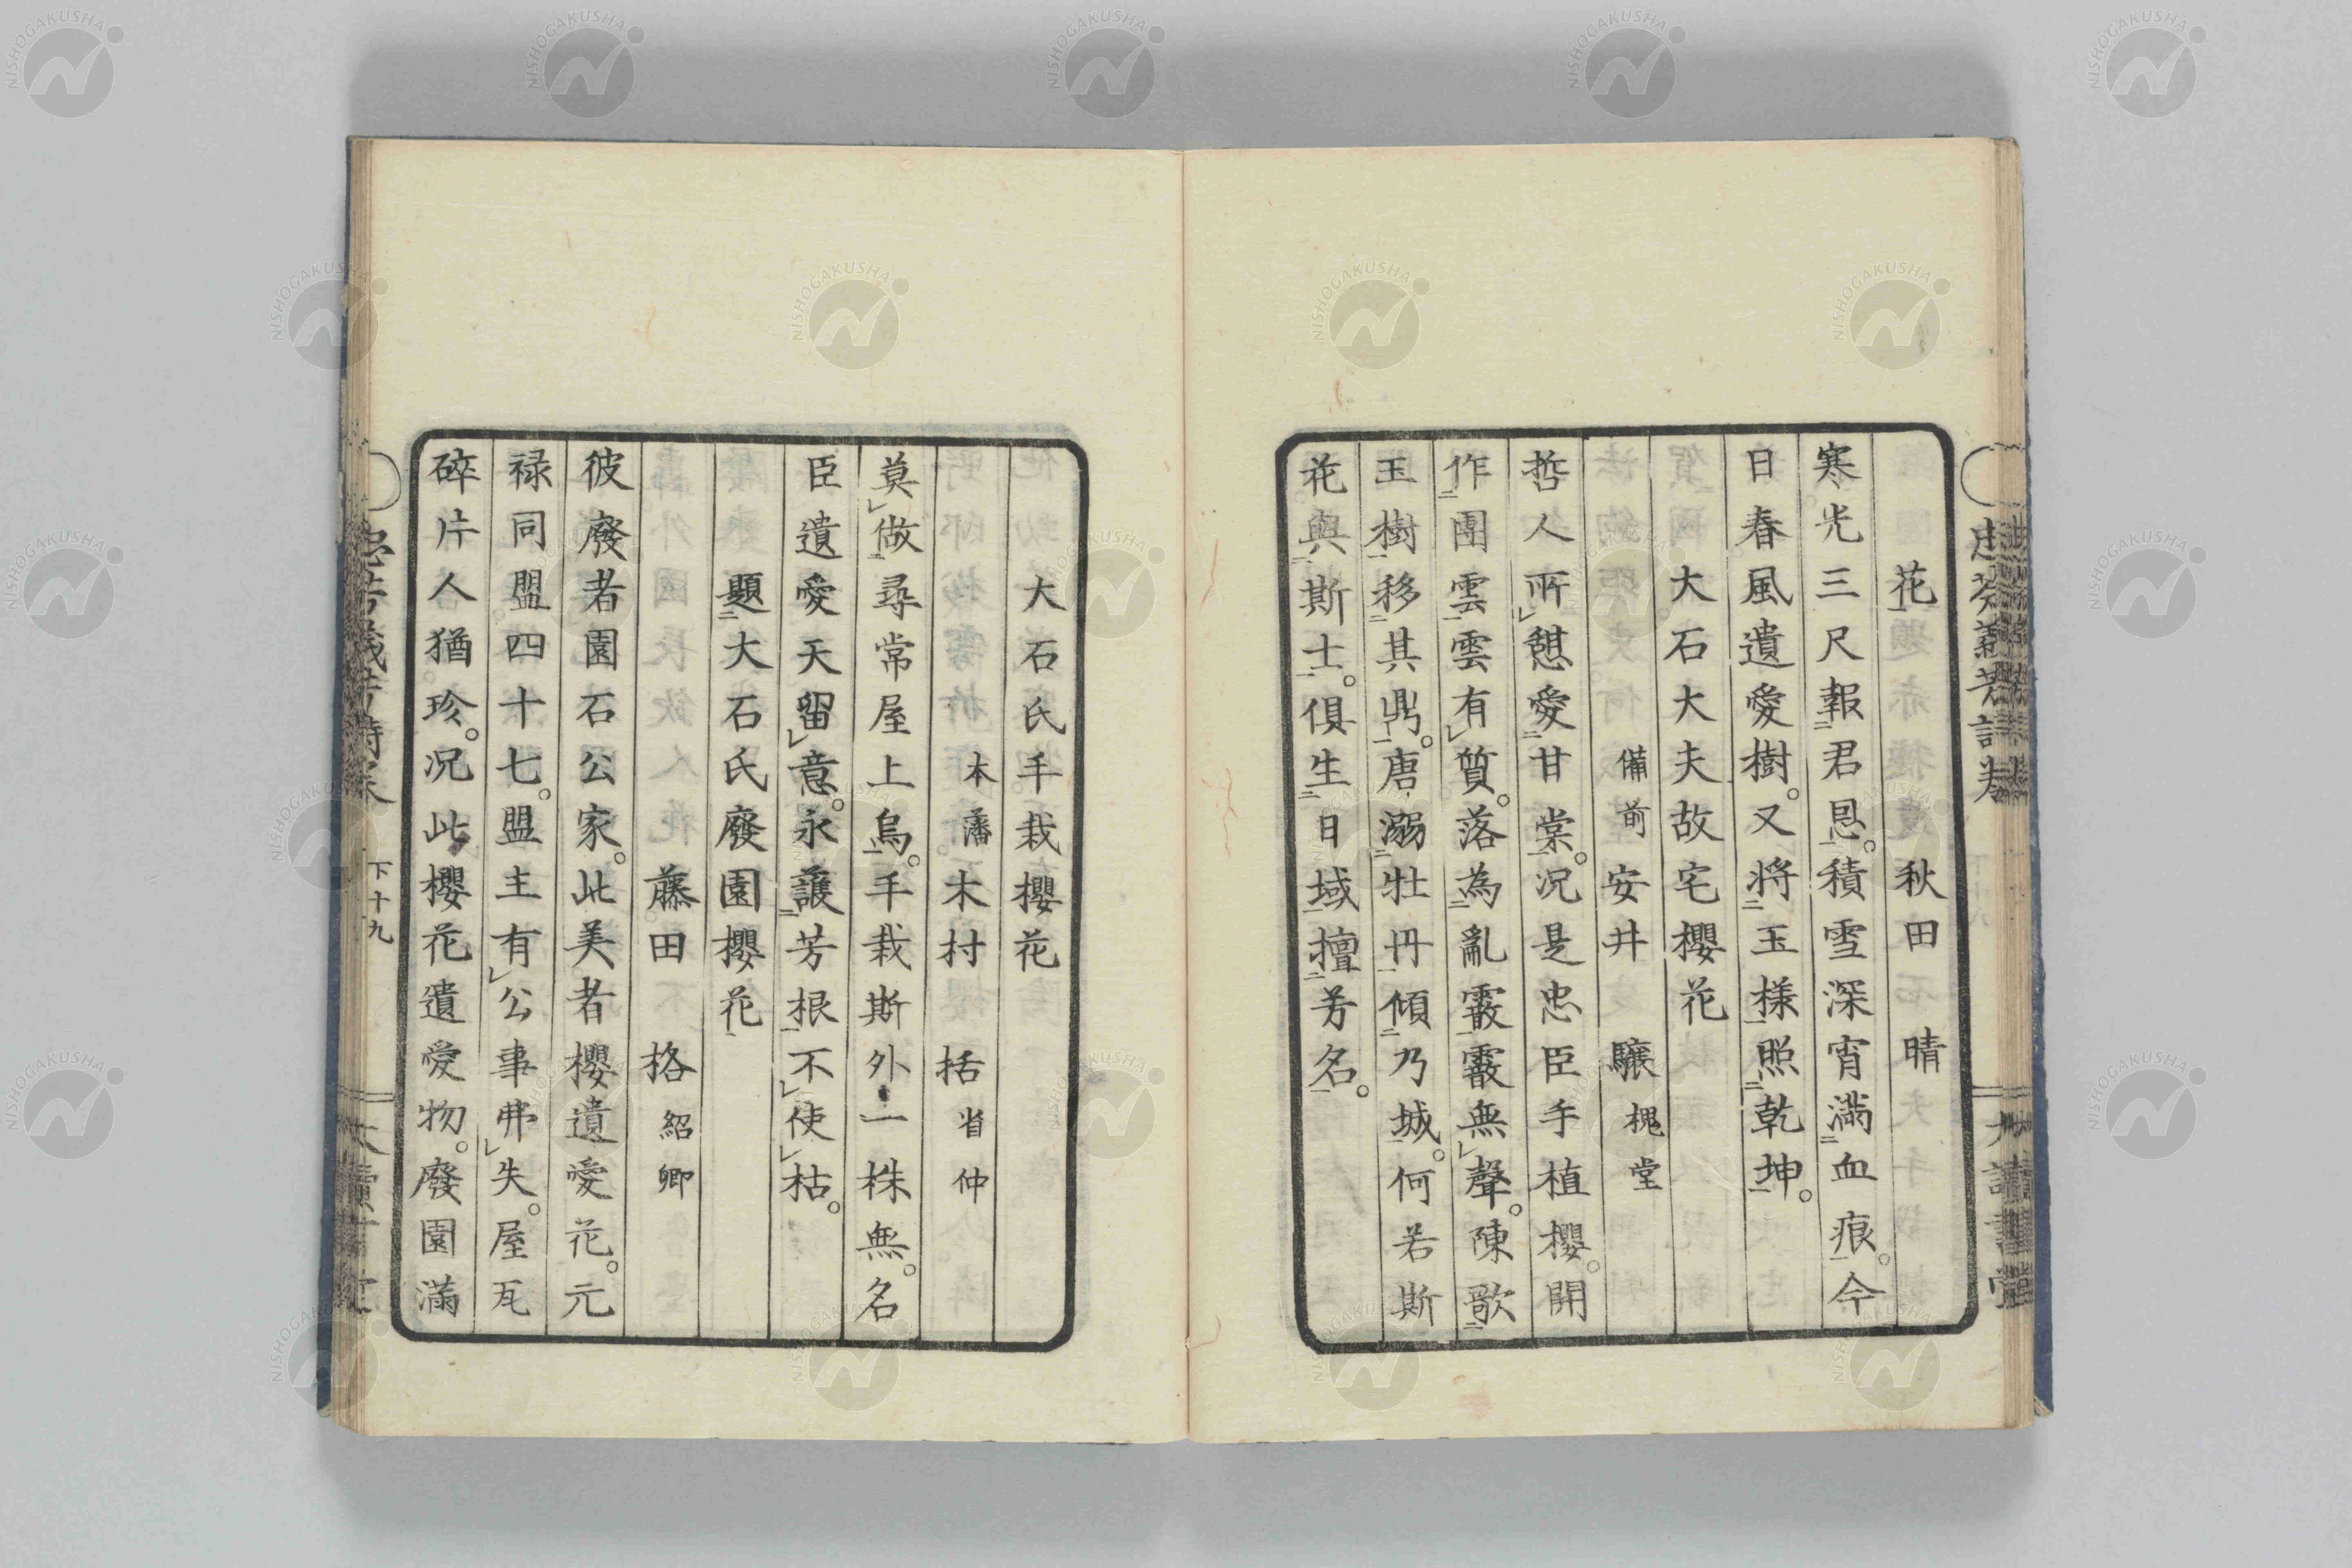 花　秋田　晴
寒光三尺報君恩。積雪深宵滿血痕。今
日春風遺愛樹。又將玉樣照乾坤。
大石大夫故宅櫻花
備前　安井　驤　槐堂
哲人所憩愛甘棠。况是忠臣手植櫻。開
作團雲雲有質。落為亂霰霰無聲。陳歌
玉樹移其鼎。唐溺牡丹傾乃城。何若斯
花與斯士。俱生日域擅芳名。
大石氏手栽櫻花
本藩　木村　括　省仲
莫做尋常屋上烏。手栽斯外一株無。名
臣遺愛天留意。永護芳根不使枯。
題大石氏廢園櫻花
藤田　格　紹卿
彼廢者園石公家。此美者櫻遺愛花。元
禄同盟四十七。盟主有公事弗失。屋瓦
碎片人猶珍。况此櫻花遺愛物。廢園滿
下十九
NISHOGAKUSHA